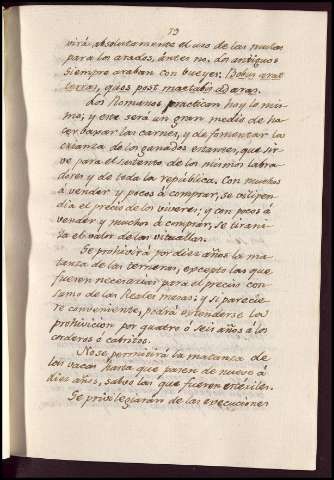 19
virá absolutamente el uso de las mulas
para los arados, ántes no. Los antiguos
siempre araban con bueyes: Bobus arat
terras, quos post mactabis ad aras.
Los Romanos practican hoy lo mis-
mo; y este será un gran medio de ha-
cer baxar las carnes, y de fomentar la
crianza de los ganados enteros, que sir-
ve para el sustento de los mismos labra-
dores y de toda la república. Con muchos
á vender y pocos á comprar, se vilipen-
dia el precio de los víveres; y con pocos á
vender y muchos á comprar, se tirani-
za el valor de las vituallas.
Se prohivirá por diez años la ma-
tanza de las terneras, excepto las que
fueren necesarias para el preciso con-
sumo de las Reales mesas; y si parecie-
re conveniente, podrá extenderse la
prohivicion por quatro ó seis años á los
corderos ó cabritos.
No se permitirá la matanza de
las vacas hasta que paren de nuevo á
diez años, salvo las que fueren estériles.
Se privilegiarán de las execuciones